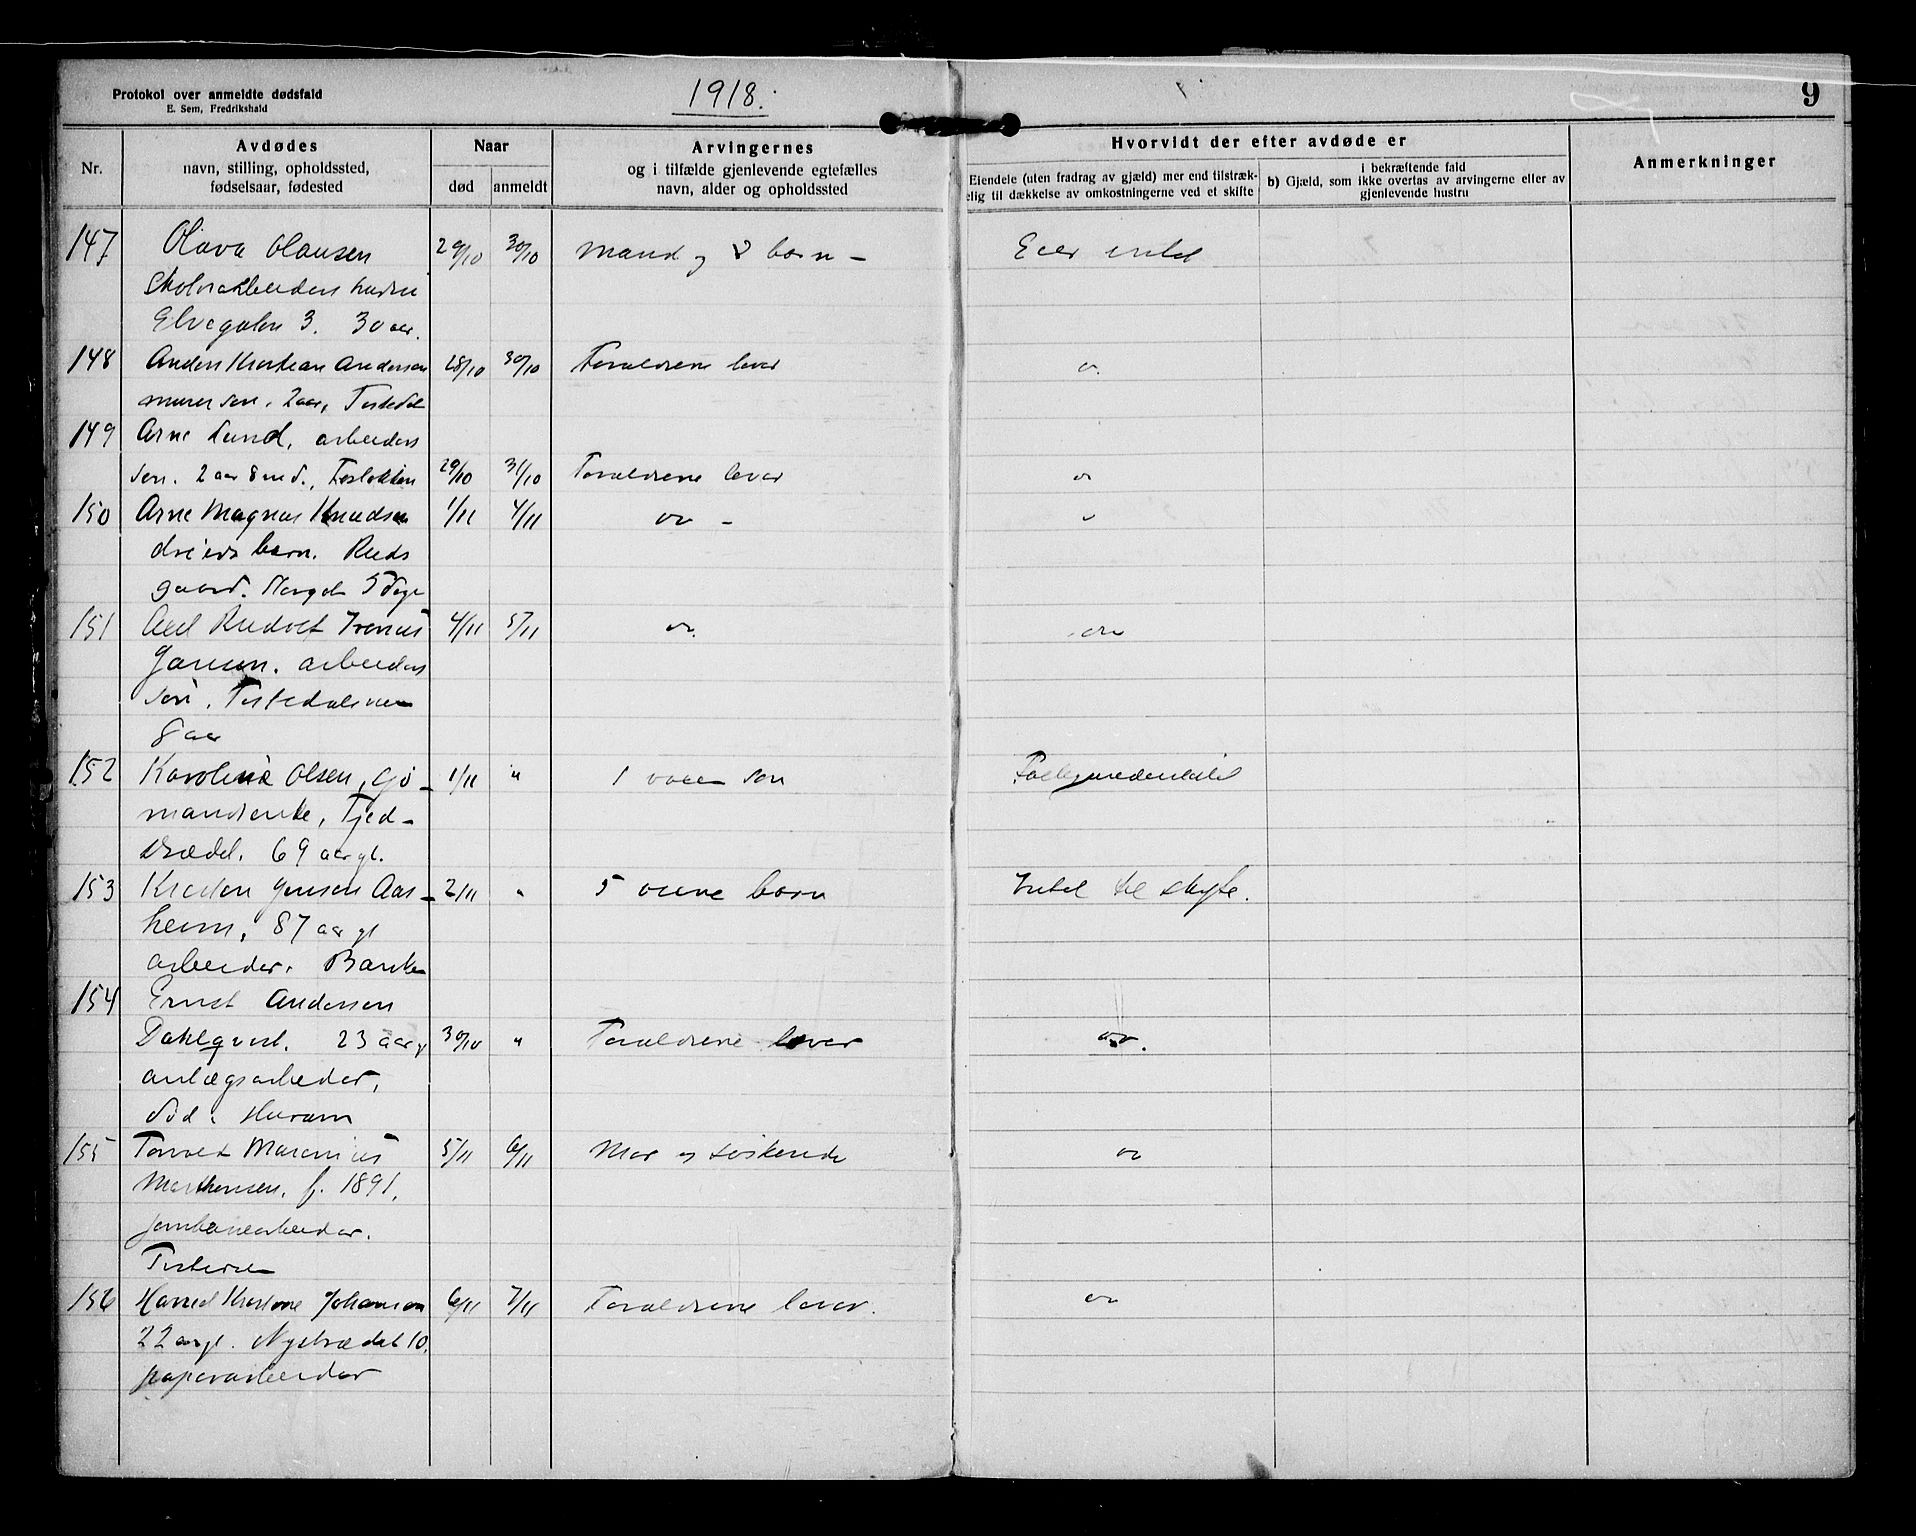 Protokol over anmeldte dødsfald
E. Sem, Fredrikshald
1918.
9
Nr.
Avdødes
navn, stilling, opholdssted,
fødselsaar, fødested
Naar
død
anmeldt
Arvingernes
og i tilfælde gjenlevende egtefælles
navn, alder og opholdssted
Hvorvidt der efter avdøde er
Eiendele (uten fradrag av gjæld) mer end tilstræk-
elig til dækkelse av omkostningerne ved et skifte
i bekræftende fald
b) Gjæld, som ikke overtas av arvingerne eller av
gjenlevende hustru
Anmerkninger
147 Olava Olausen 29/10 30/10 Mand og børn - Eier intet
hustru
Elvegaten 3. 30 aar.
148 Anders Kristian Andersen 28/10 30/10 Forældrene lever
murer søn. 2 aar, Tistedal
149 Arne Lund, arbeiders
søn. 2 aar 8 md., 29/10 31/10 Forældrene lever
150 Arne Magnus Knudsen 1/11 4/11
dreiers barn. Ruds
gaard. 5 dage
151 Axel Rudolf 4/11 5/11
Jansen. arbeiders
søn. Tistedalen
8 aar
152 Karoline Olsen, gd- 1/11 " 1 voksen søn
mandsenke, Tjed-
strædet. 69 aar gl.
153 Kristen Jensen Aas- 2/11 " 5 børn Intet til skifte.
heim, 87 aar gl
arbeider. Banken
154 Ernst Andersen
Dahlqvist. 23 aar gl 30/10 " Forældrene lever
anlægsarbeider,
død i Hurum
155 Torvald Marenius 5/11 6/11 Mor og søskende
Marthinsen, f. 1891,
jernbanearbeider.
Tistedalen
156 Harald Kristian Johansen 6/11 7/11 Forældrene lever.
22 aar gl. Nystrædet 10.
papirarbeider